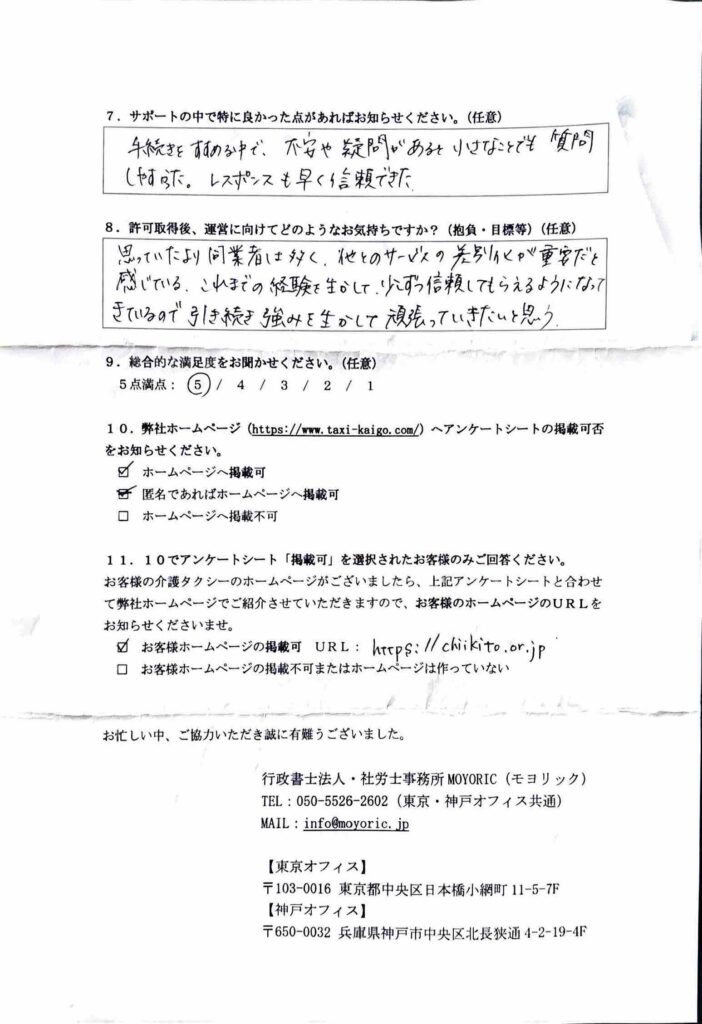 7．サポートの中で特に良かった点があればお知らせください。(任意)
手続きをすすめる中で、不安や疑問があると小さなことでも質問
しやすかった。レスポンスも早く信頼できた
8．許可取得後、運営に向けてどのようなお気持ちですか？（抱負・目標等）(任意)
思っていたより同業者は多く、他とのサービスの差別化が重要だと
感じている。これまでの経験を生かして、少しずつ信頼してもらえるようになって
きているので引き続き強みを生かして頑張っていきたいと思う。
9．総合的な満足度をお聞かせください。(任意)
5点満点： 5 / 4 / 3 / 2 / 1
10．弊社ホームページ（https://www.taxi-kaigo.com/）へアンケートシートの掲載可否
をお知らせください。
☑ ホームページへ掲載可
☑ 匿名であればホームページへ掲載可
□ ホームページへ掲載不可
11．10でアンケートシート「掲載可」を選択されたお客様のみご回答ください。
お客様の介護タクシーのホームページがございましたら、上記アンケートシートと合わせ
て弊社ホームページでご紹介させていただきますので、お客様のホームページのURLを
お知らせくださいませ。
☑ お客様ホームページの掲載可 URL： https://chiikito.or.jp
□ お客様ホームページの掲載不可またはホームページは作っていない
お忙しい中、ご協力いただき誠に有難うございました。
行政書士法人・社労士事務所MOYORIC（モヨリック）
TEL：050-5526-2602（東京・神戸オフィス共通）
MAIL：info@moyoric.jp
【東京オフィス】
〒103-0016 東京都中央区日本橋小網町11-5-7F
【神戸オフィス】
〒650-0032 兵庫県神戸市中央区北長狭通4-2-19-4F